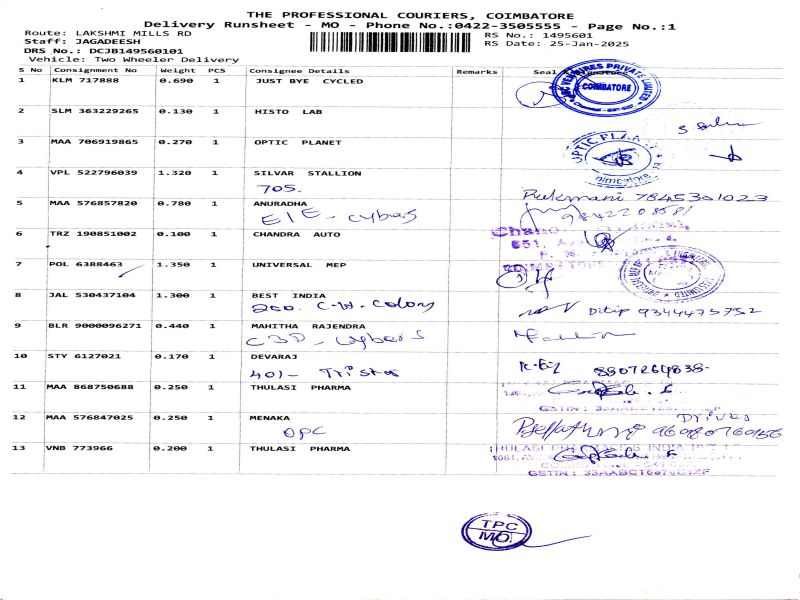 THE PROFESSIONAL COURIERS, COIMBATORE
Delivery Runsheet - MO - Phone No.:0422-3505555 - Page No.:1
Route: LAKSHMI MILLS RD
RS No.: 1495601
Staff: JAGADEESH
RS Date: 25-Jan-2025
DRS No.: DCJB149560101
Vehicle: Two Wheeler Delivery
S No Consignment No Weight PCS Consignee Details Remarks Seal
1 KLM 717888 0.690 1 JUST BYE CYCLED
COIMBATORE
2 SLM 363229265 0.130 1 HISTO LAB
3 MAA 706919865 0.270 1 OPTIC PLANET
4 VPL 522796039 1.320 1 SILVAR STALLION
705.
Rukmani 7845301023
5 MAA 576857820 0.780 1 ANURADHA
E1E - Cybers
9842208581
6 TRZ 190851002 0.100 1 CHANDRA AUTO
7 POL 6388463 1.350 1 UNIVERSAL MEP
8 JAL 530437104 1.300 1 BEST INDIA
200. C-W-Colony
Dilip 9344475752
9 BLR 9000096271 0.440 1 MAHITHA RAJENDRA
C3D - Cybers
10 STY 6127021 0.170 1 DEVARAJ
401- Tristar
8807264838-
11 MAA 868750688 0.250 1 THULASI PHARMA
12 MAA 576847025 0.250 1 MENAKA
OPC
Driver
9609760156
13 VNB 773966 0.200 1 THULASI PHARMA
TPC
MO.